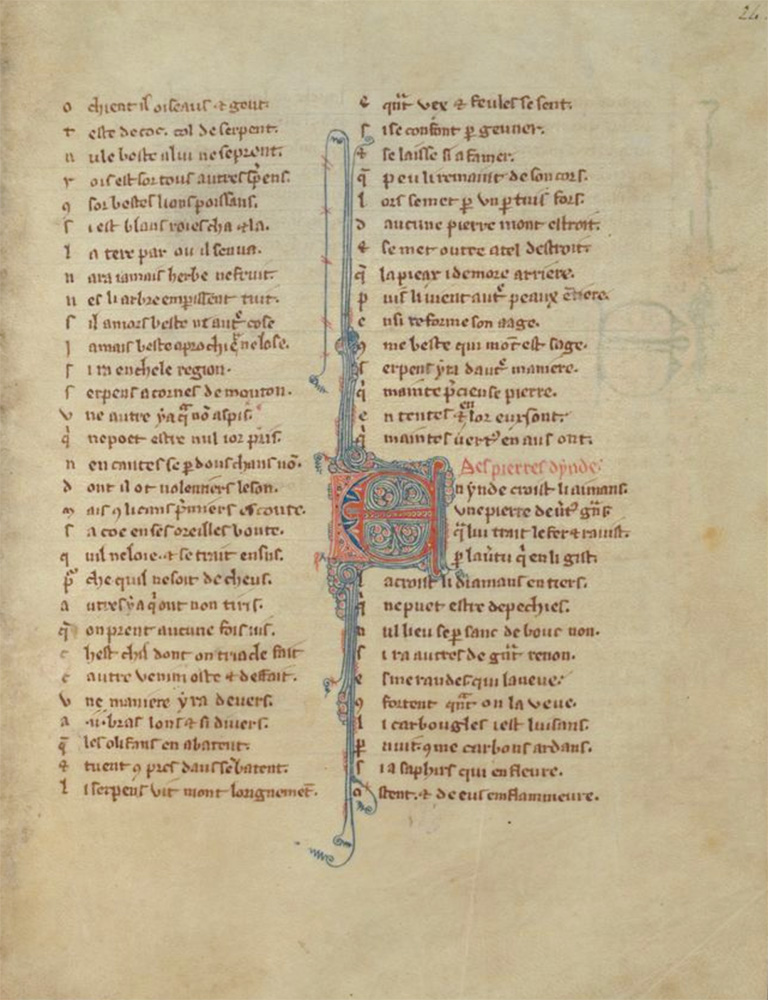 24.
o chient il oiseaus ⁊ gout.
t este de coc. col de serpent.
n ule beste a lui ne se prent.
r ois est sor tous autres s̄pens.
ꝯ sor bestes lions poissans.
s i est blans roies cha ⁊ la.
l a tere par ou il sen ua.
n ara iamais herbe ne fruit.
n es li arbre empissent tuit.
s il a mors beste ut aut᷑ cose
j amais beste aprochiē ne lose.
s i ra en chele region.
s erpens a cornes de mouton.
v ne autre ẏa q̄ nō aspis.
q̇ ne poet estre nul ior pͥs.
n en cantes se ꝑ dous chans nō.
d ont il ot uolentiers le son.
m ais ꝯ li cans pͥmiers escoute.
s a coe en ses oreilles boute.
q uil ne loie. ⁊ se trait ensus.
p̄ che quil ne soit decheus.
a utres ẏa q̇ ont non tiris.
q̄ on prent aucune fois uis.
c hest chil dont on triacle fait
c autre venim oste ⁊ desfait.
v ne maniere ẏ ra de vers.
a .ii. bras lons ⁊ si diuers.
q̄ les olifans en abatent.
⁊ tuent ꝯ pres daus se batent.
l i serpens vit mont longnemēt.
e qn̄t vex ⁊ feules se sent.
s i se confont ꝑ geuner.
⁊ se laisse si afamer.
q̄ peu li remaint de son cors.
l ors se met ꝑ vn ꝑtuis fors.
d aucune pierre mont estroit.
⁊ se met outre a tel destroit.
q̄ la piear i demore arriere.
p uis li uient aut᷑ peaux ētiere.
e nsi reforme son aage.
ꝯ me beste qui mōt est sage.
s erpens ẏ ra daut᷑ maniere.
q̇ mainte p̄ciense pierre.
e n testes ⁊ en lor eux sont.
q̇ maintes uert᷑ en aus ont.
Des pierres dẏnde.
E n ẏnde croist li aimans.
vne pierre de ut᷑ gn̄s
q̇ lui trait le fer ⁊ rauist.
ꝑ la ūtu q̄ en li gist.
l a croist li diamans entiers.
q̇ ne puet estre depechies.
n ul lieu se ꝑ sanc de bouc non.
s i ra autres de gn̄t renon.
e smeraudes qui la ueue.
ꝯ fortent qn̄t on la veue.
l i carbougles i est luisans.
p nuit. ꝯme carbons ardans.
s i a saphirs qui en fleure.
o stent. ⁊ de eus enflammeure.